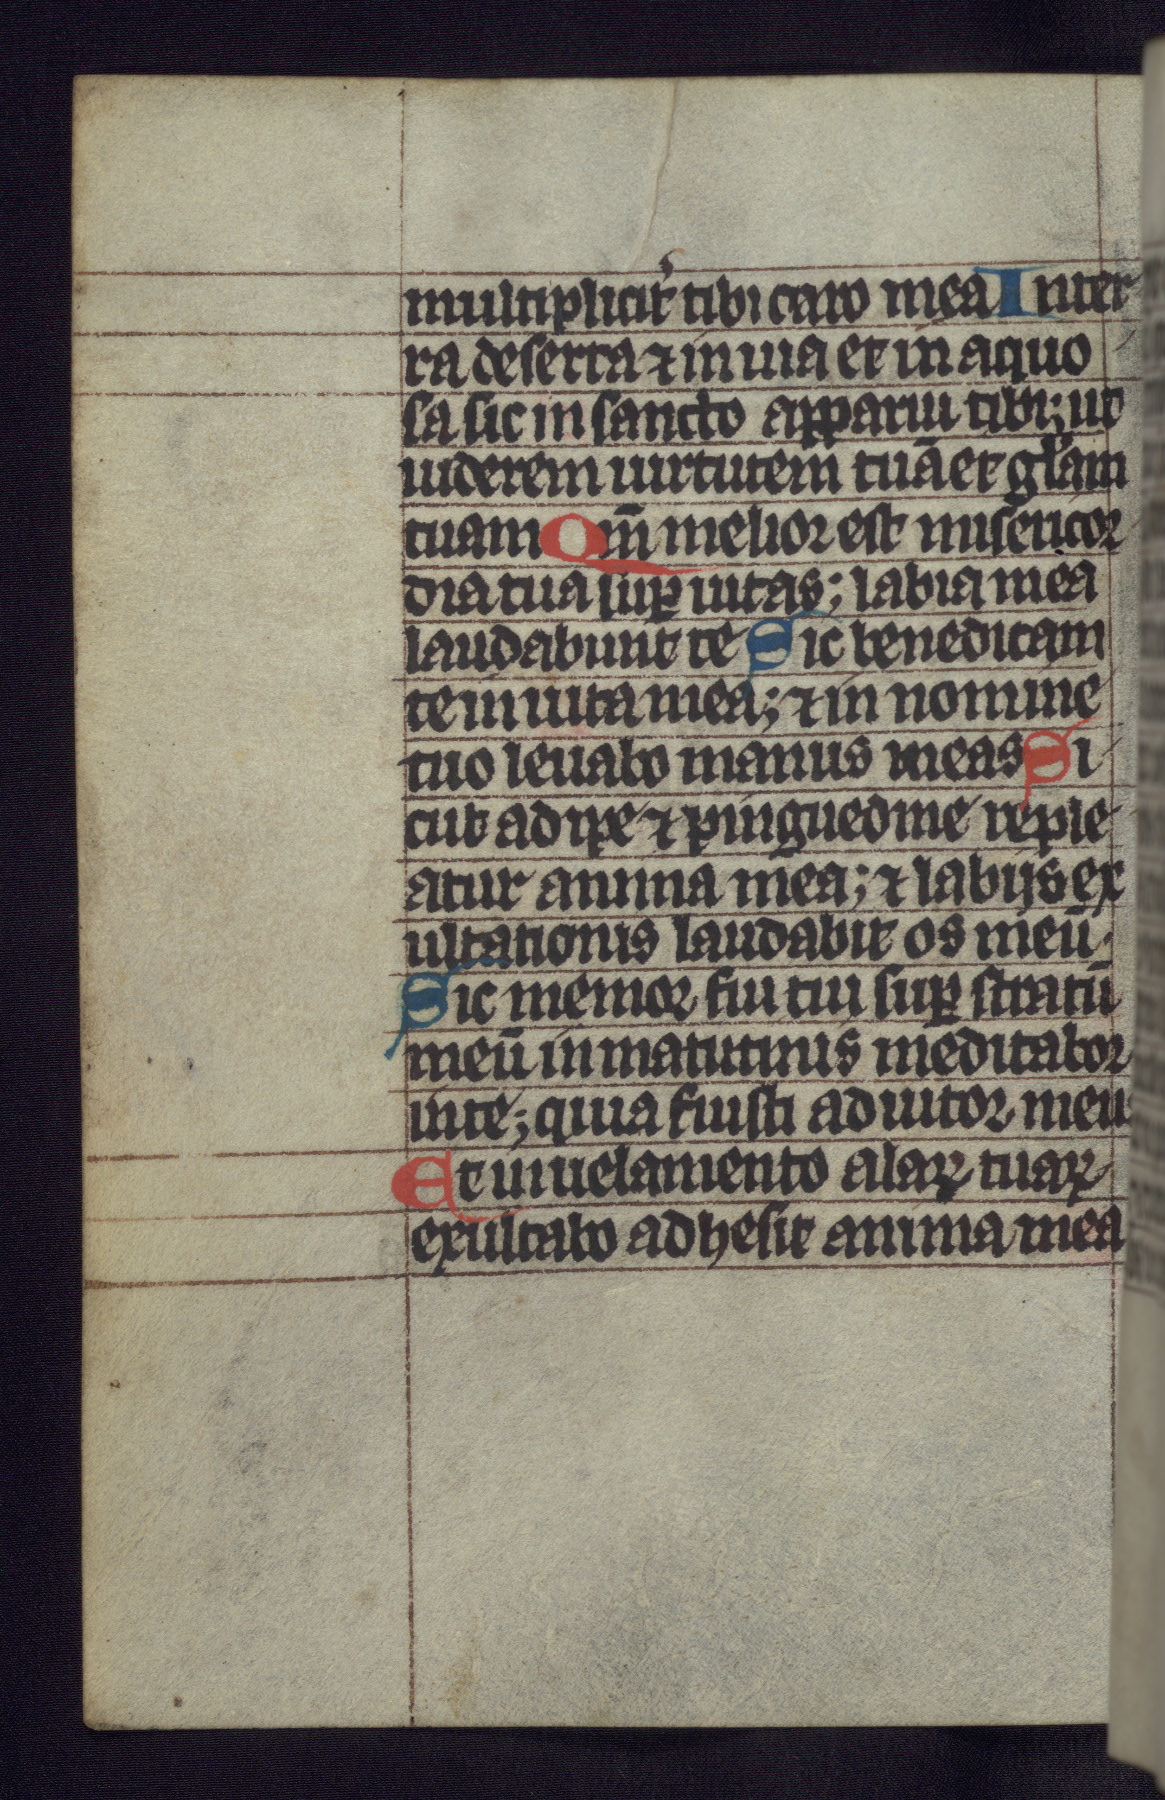 multiplicit̉ tibi caro mea In ter
ra deserta ⁊ in uia et in aquo
sa sic in sancto apparui tibi; ut
uiderem uirtutem tuā et gl̓am
tuam Qm̄ melior est misericor
dia tua suꝑ uitas; labia mea
laudabunt te Sic benedicam
te in uita mea; ⁊ in nomine
tuo leuabo manus meas Si
cut adipe ⁊ pinguedine reple
atur anima mea; ⁊ labijs ex
ultationis laudabit os meū.
Sic memor fui tui suꝑ stratū
meū in matutinis meditabor
in te; quia fuisti adiutor meu
Et in uelamento alaꝝ tuaꝝ
exultabo adhesit anima mea